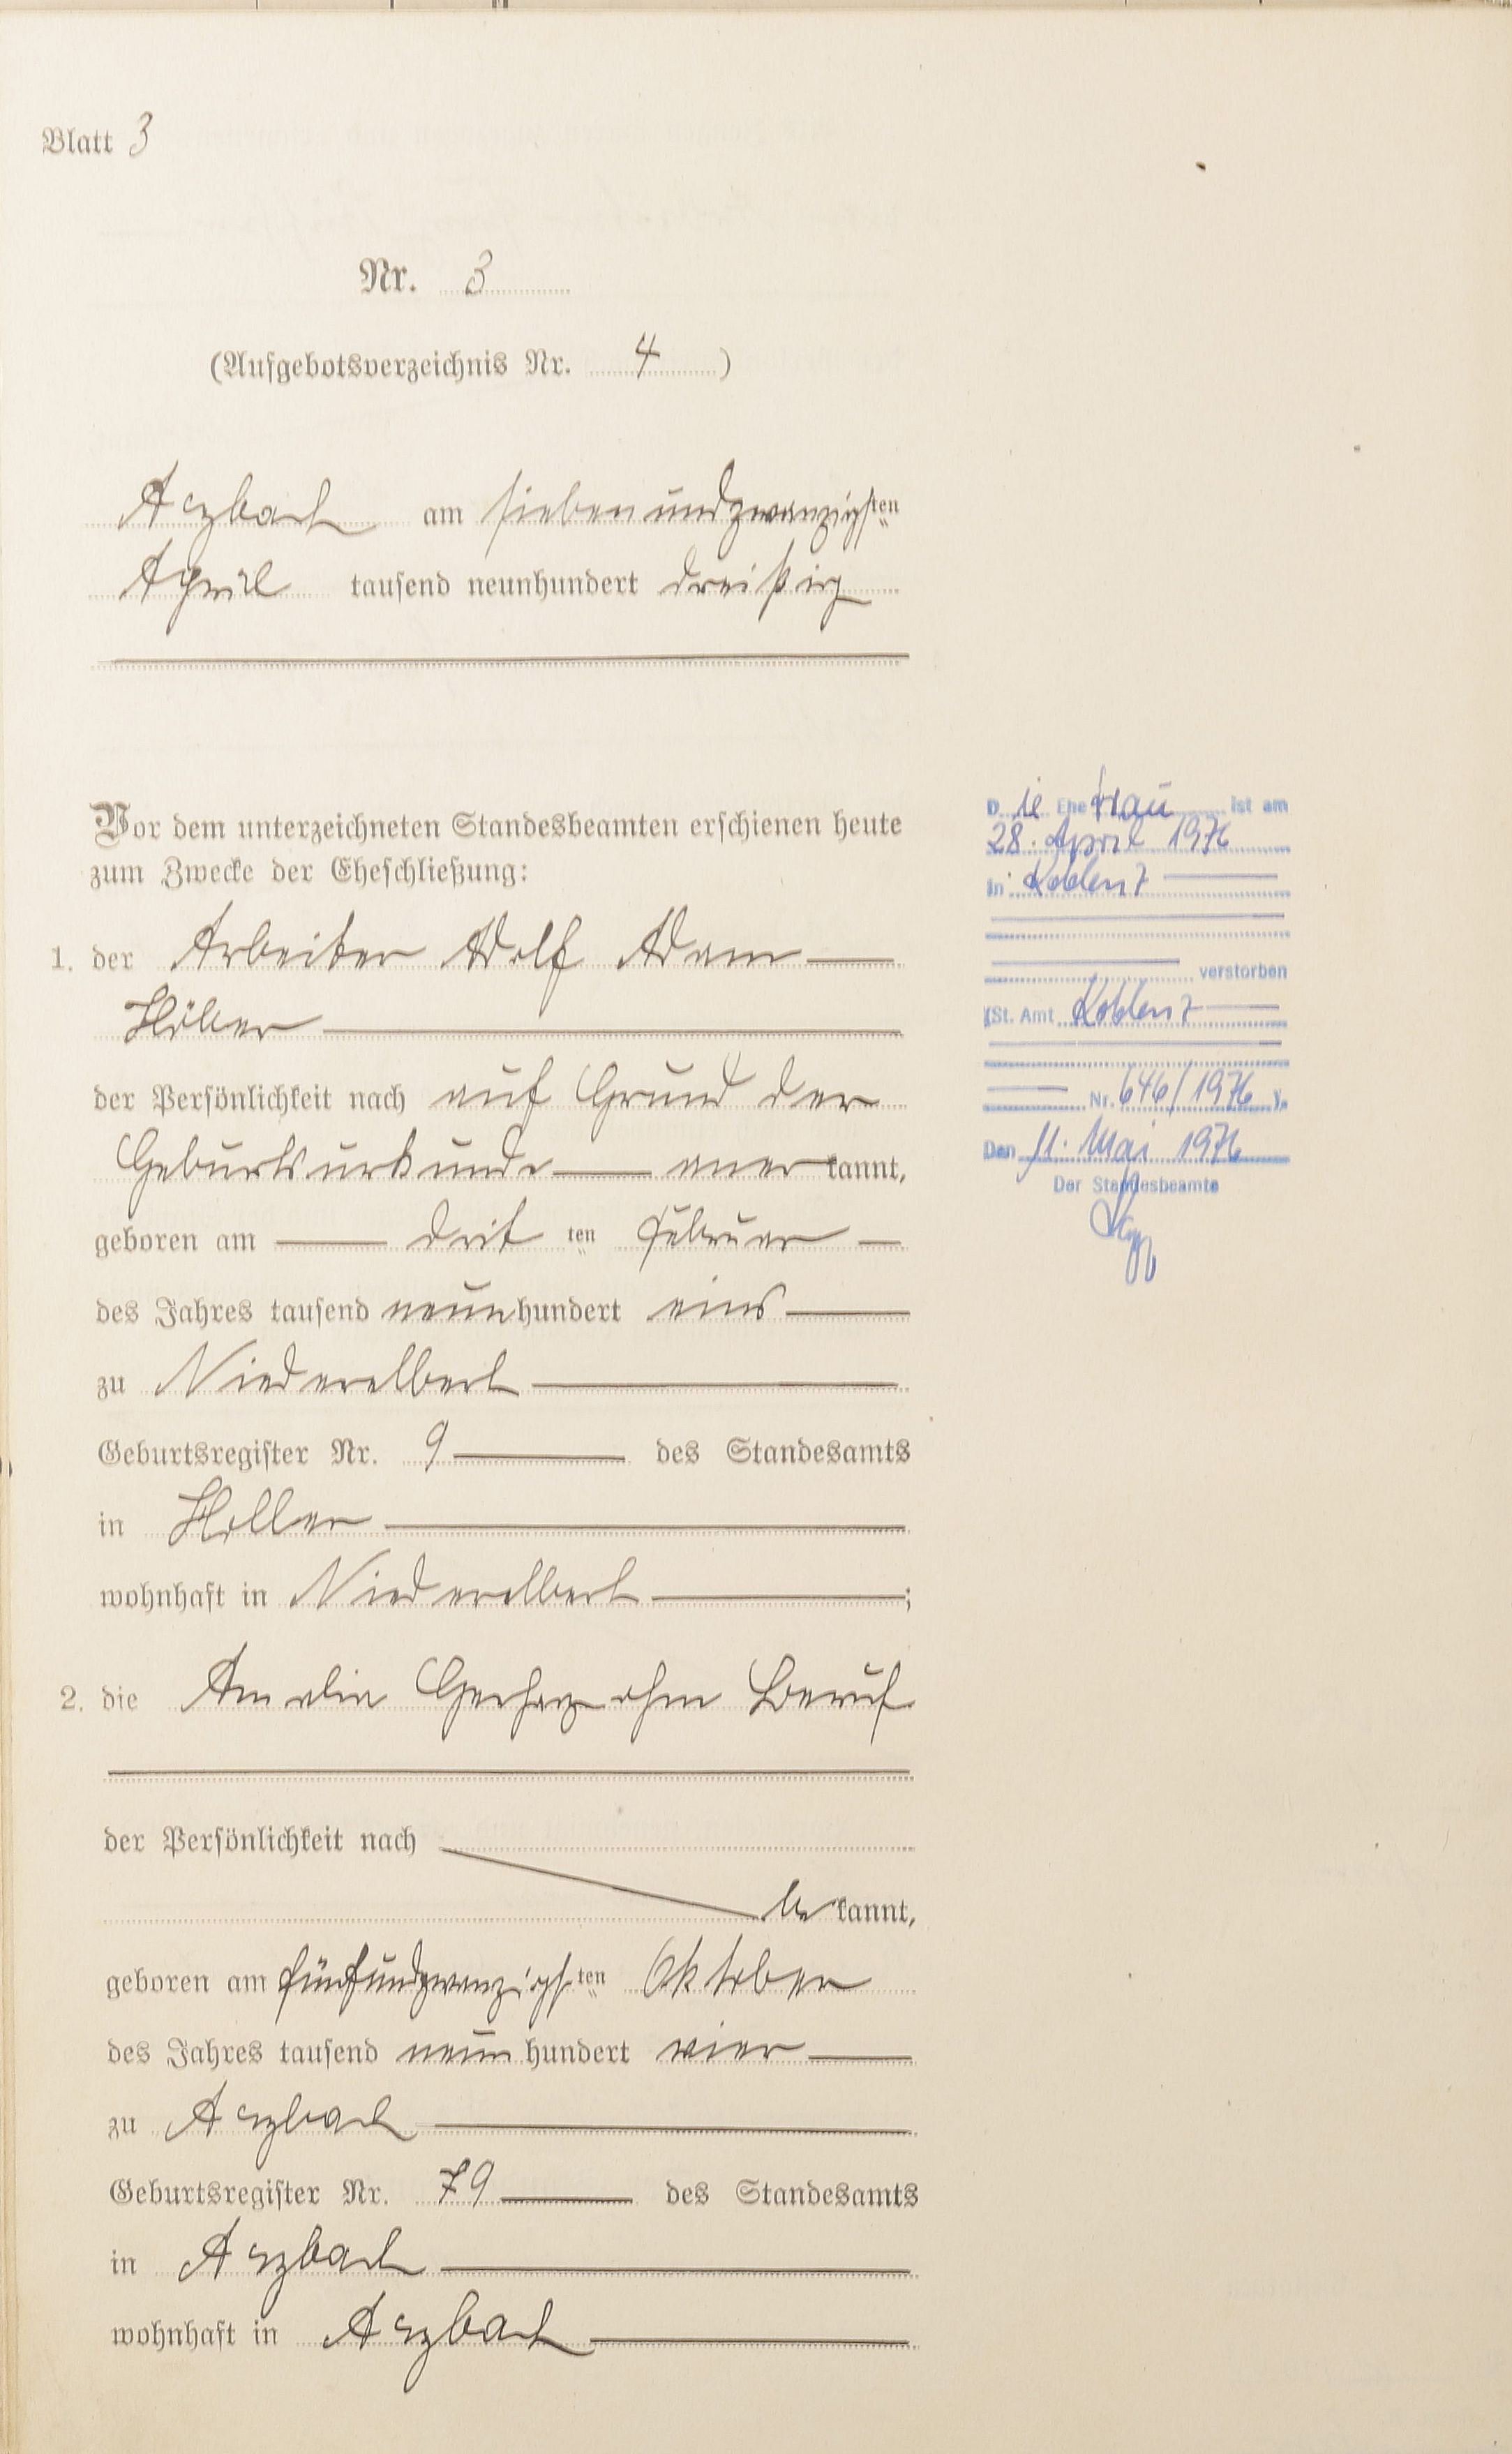 Blatt 3
Nr. 3
(Aufgebotsverzeichnis Nr. 4 )
Arzbach am siebenundzwanzigsten
April tausend neunhundert dreißig
Vor dem unterzeichneten Standesbeamten erschienen heute
zum Zwecke der Eheschließung:
1. der Arbeiter Adolf Adam
Höber
der Persönlichkeit nach auf Grund der
Geburtsurkunde anerkannt,
geboren am dritten Februar
des Jahres tausend neunhundert eins
zu Niederelbert
Geburtsregister Nr. 9 des Standesamts
in Holler
wohnhaft in Niederelbert ;
2. die Amalie Gerharz ohne Beruf
der Persönlichkeit nach
bekannt,
geboren am fünfundzwanzigsten Oktober
des Jahres tausend neunhundert vier
zu Arzbach
Geburtsregister Nr. 79 des Standesamts
in Arzbach
wohnhaft in Arzbach
Die Ehefrau ist am
28. April 1976
in Koblenz
verstorben
(St. Amt Koblenz
Nr. 646/1976 ).
Den 11. Mai 1976
Der Standesbeamte